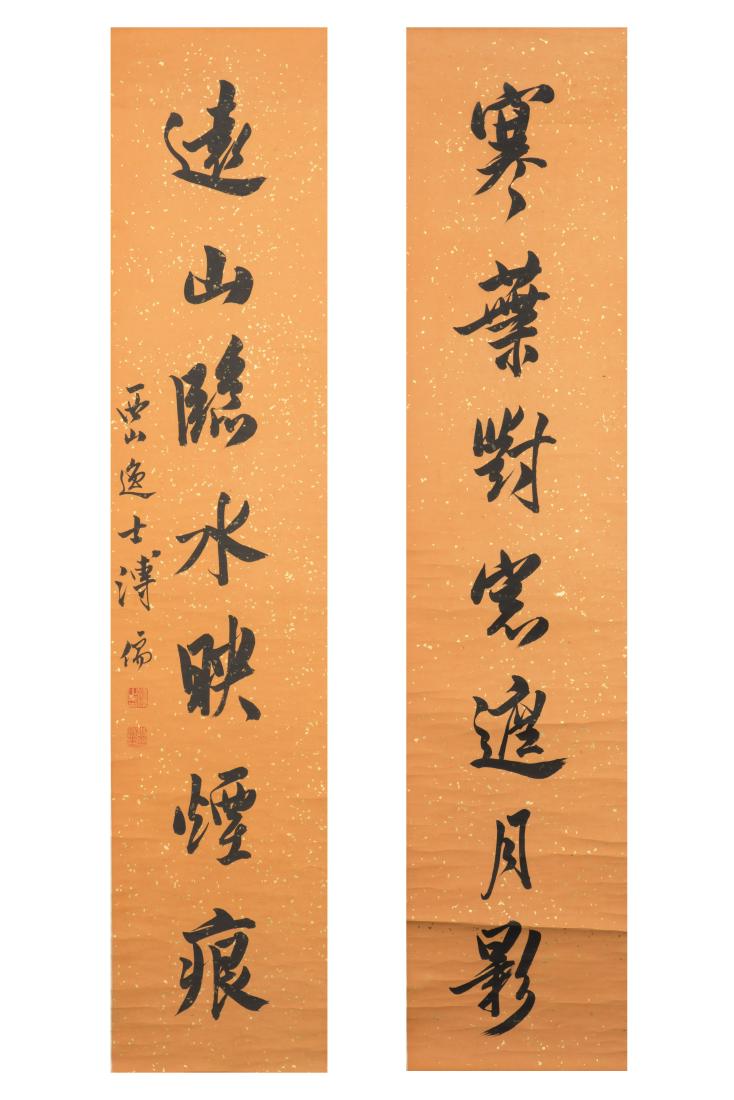 寒葉對窻遮月影
遠山臨水映煙痕
西山逸士溥儒